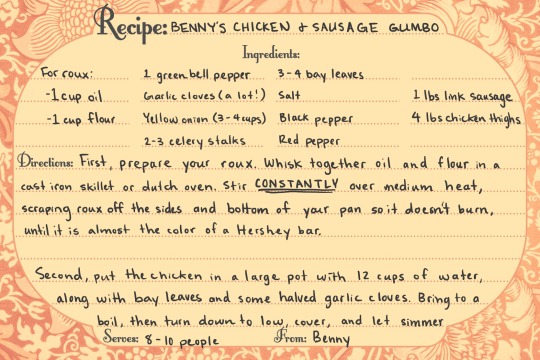 Recipe: BENNY'S CHICKEN & SAUSAGE GUMBO
Ingredients:
For roux: 1 green bell pepper 3-4 bay leaves
-1 cup oil Garlic cloves (a lot!) Salt 1 lbs link sausage
-1 cup flour Yellow onion (3-4 cups) Black pepper 4 lbs chicken thighs
2-3 celery stalks Red pepper
Directions: First, prepare your roux. Whisk together oil and flour in a
cast iron skillet or dutch oven. Stir CONSTANTLY over medium heat,
scraping roux off the sides and bottom of your pan so it doesn't burn,
until it is almost the color of a Hershey bar.
Second, put the chicken in a large pot with 12 cups of water,
along with bay leaves and some halved garlic cloves. Bring to a
boil, then turn down to low, cover, and let simmer
Serves: 8-10 people From: Benny